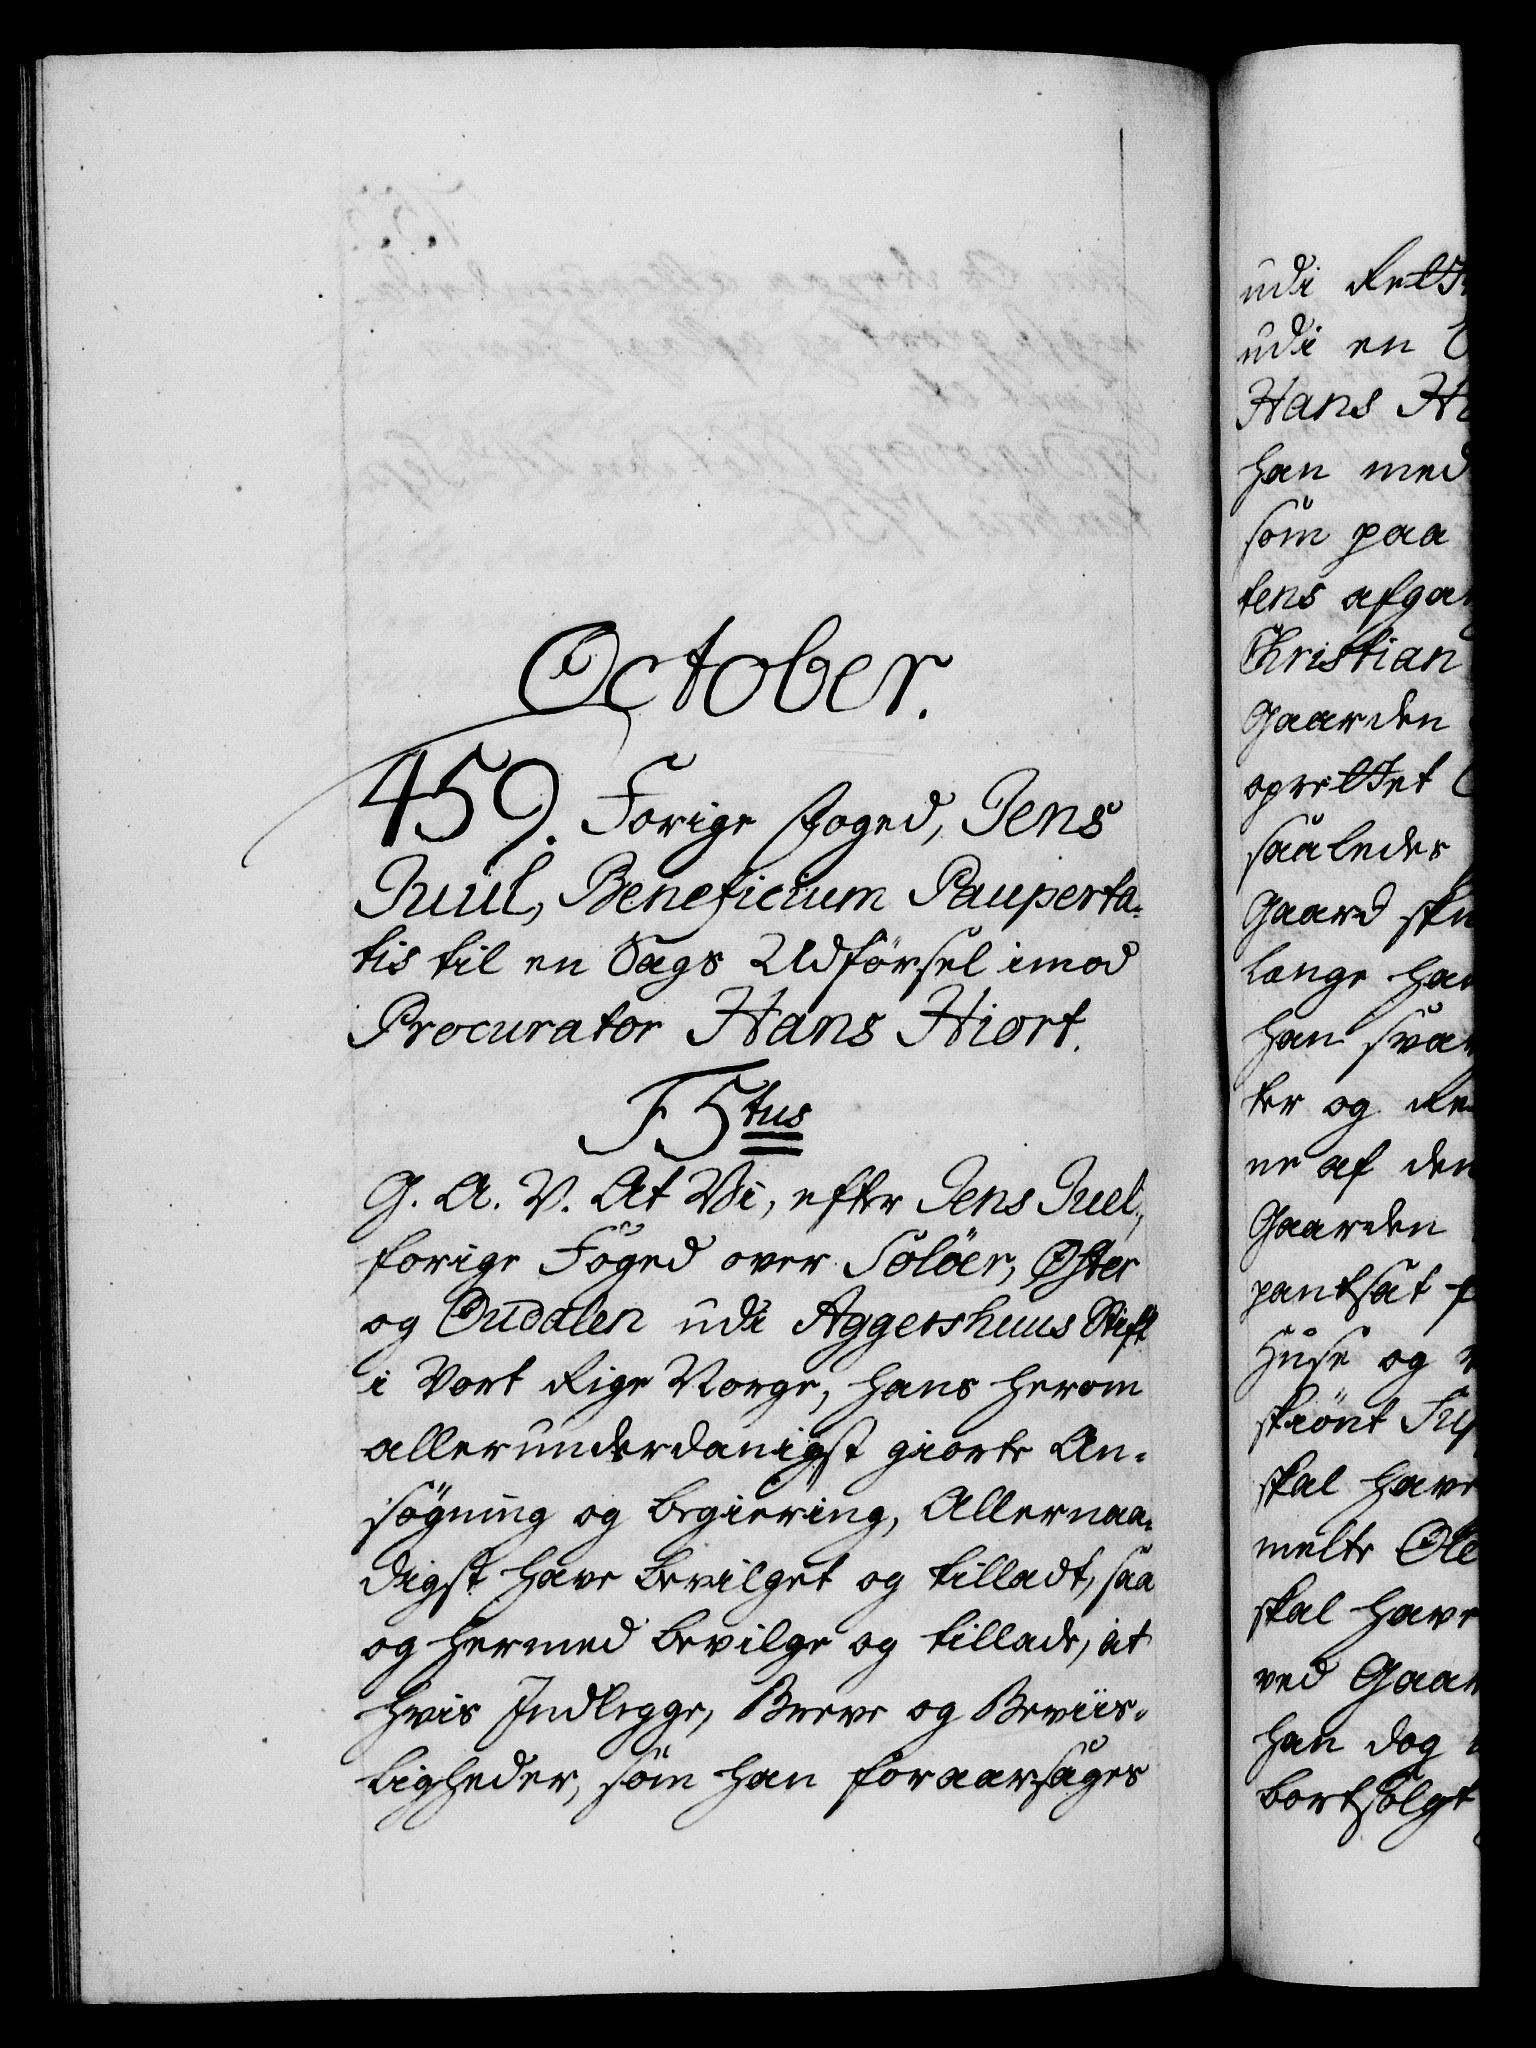 October.
459. Forige Foged, Jens
Juul, Beneficium Pauperta-
tis til en Sags Udførsel imod
Procurator Hans Hiort.
F5tus
G. A. V. At Vi, efter Jens Juel,
forige Foged over Soløer, Øster
og Oudalen udi Aggershuus Stift
i Vort Rige Norge, hans herom
allerunderdanigst giorte An-
søgning og begiering, Allernaa-
digst have bevilget og tilladt, saa
og hermed bevilge og tillade, at
hvis Indlegge, Breve og Beviis-
ligheder, som han foraarsages
udi
udi en
Hans
han med
som paa
tens
Christian
Gaarden
oprettet
saaledes
Gaard
længe
han
ter og
ne af den
Gaarden
pantsat
Huse og
skiønt
skal have
melte Ole
skal have
ved
han dog
bortsolgt